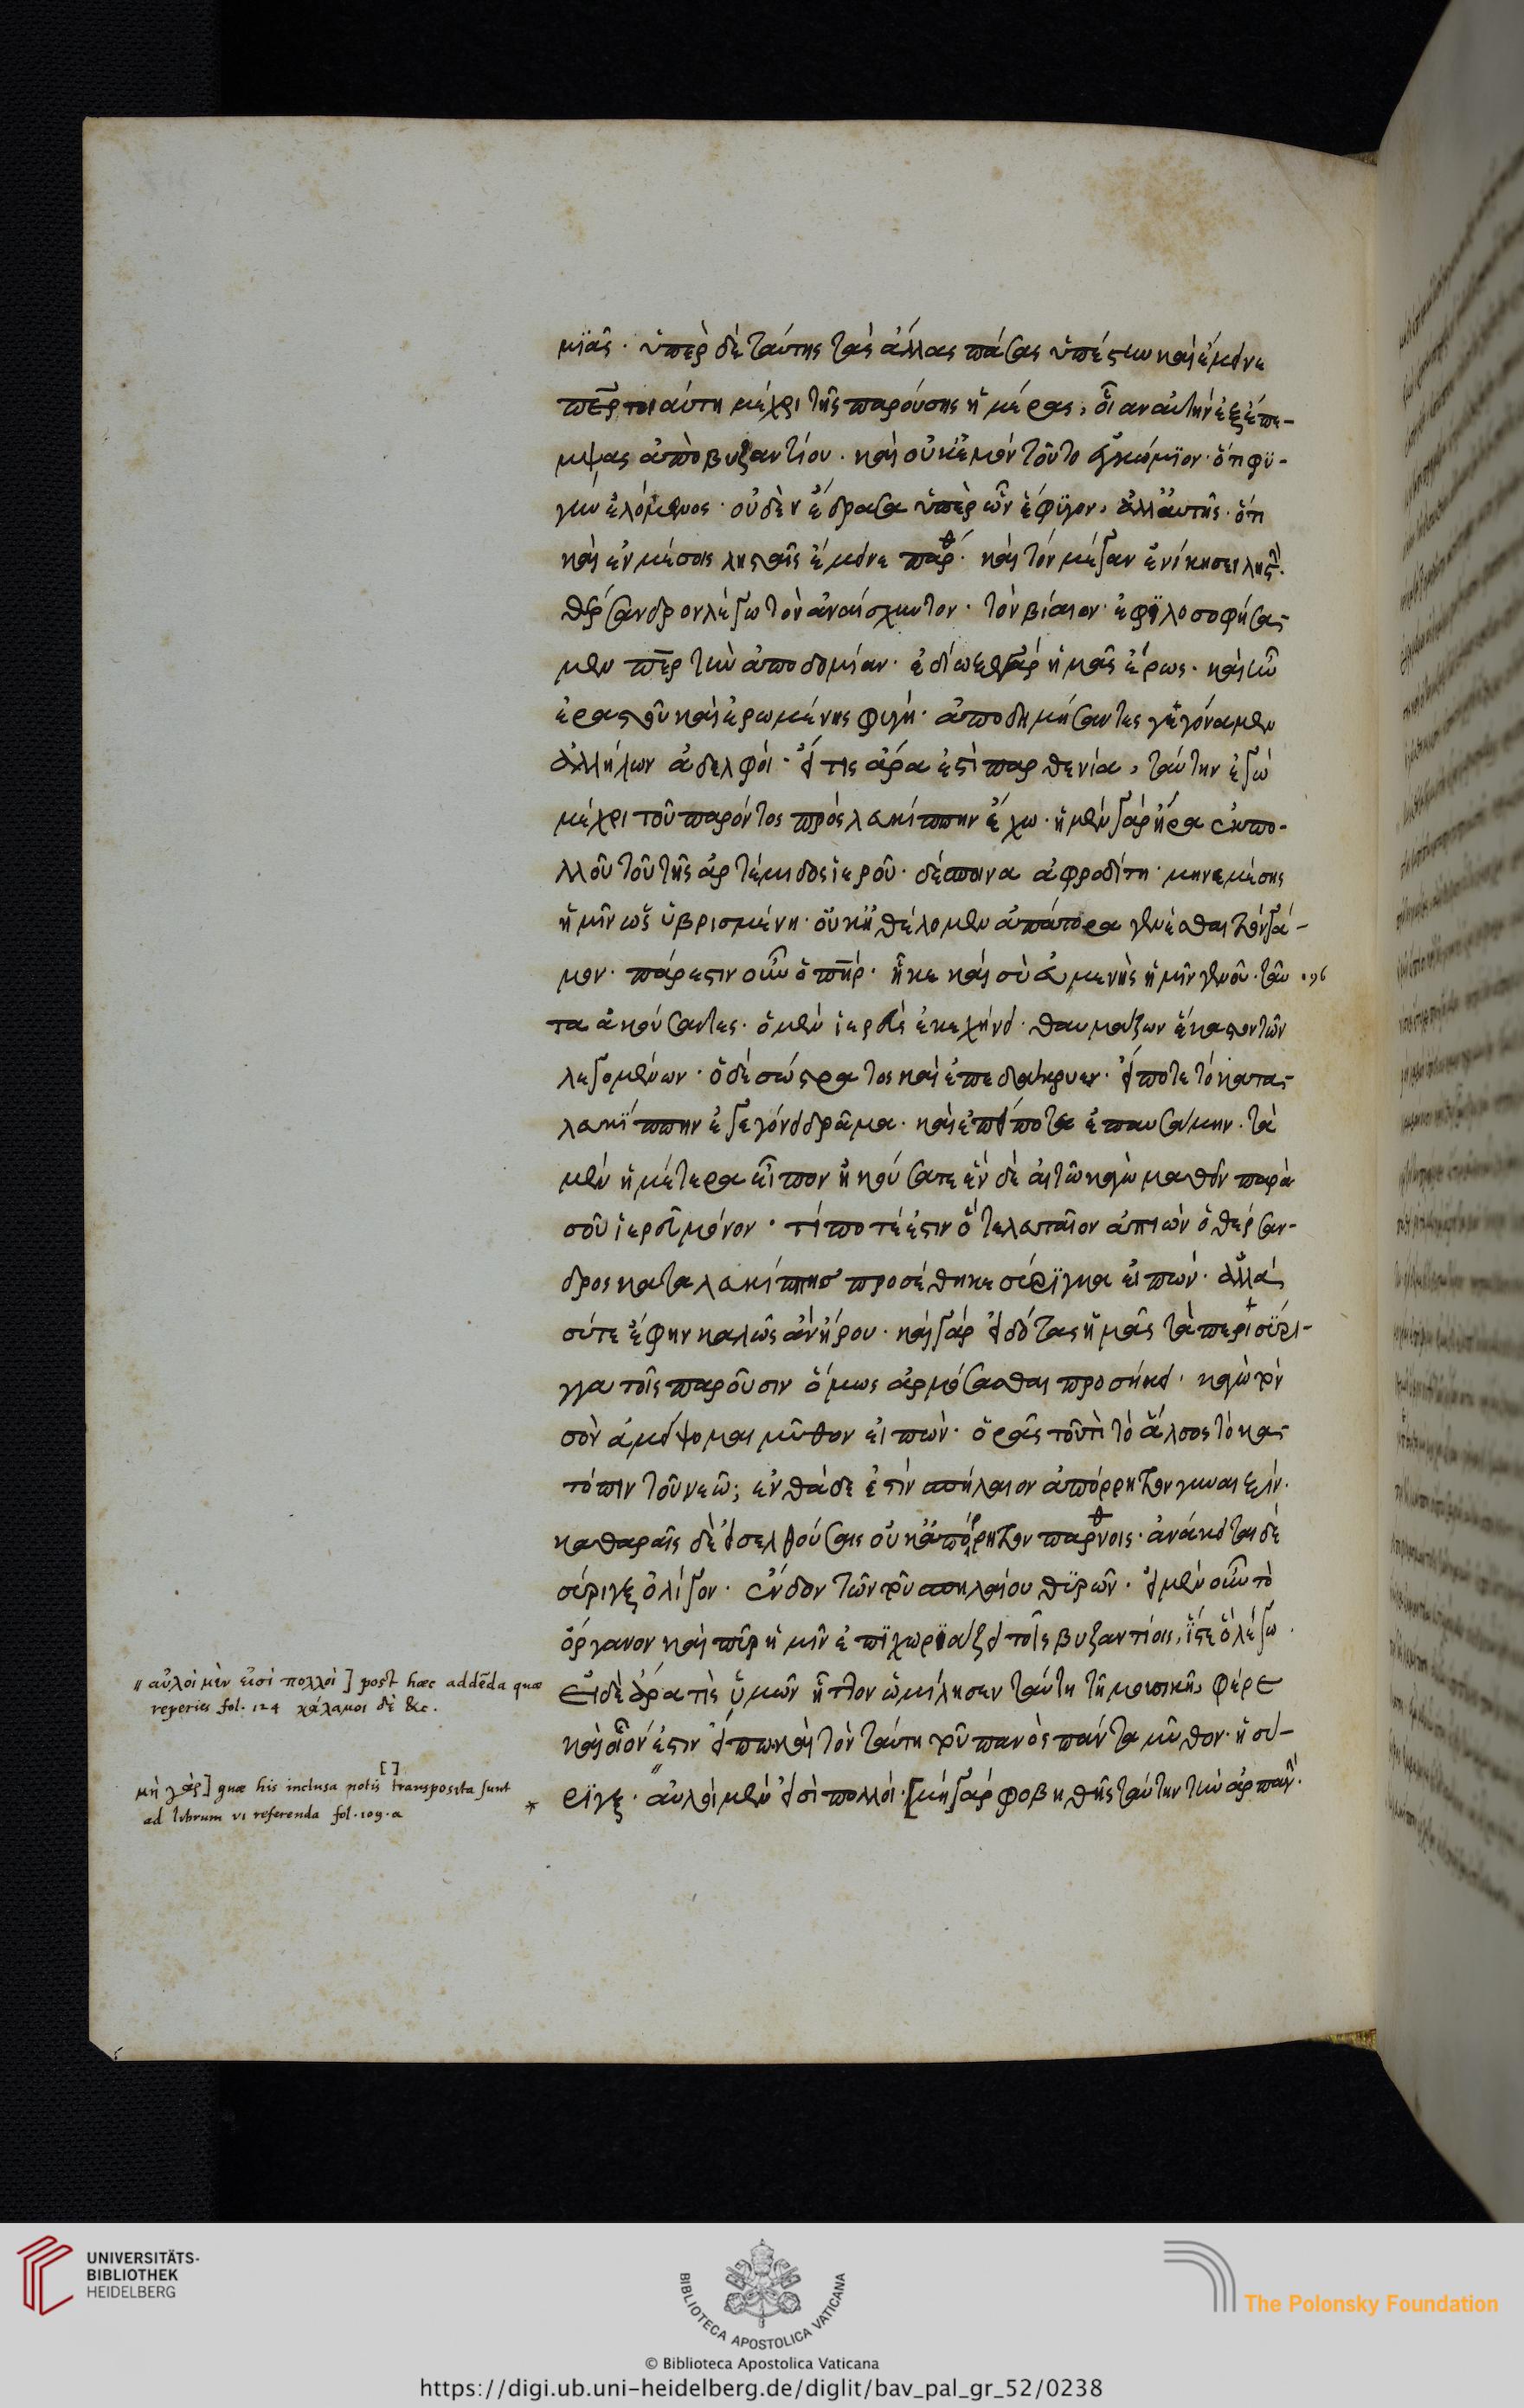 μιᾶς. ὑπὲρ δὲ ταύτης τὰς ἄλλας πάσας ὑπέστην καὶ ἔμεινε
τοιαύτη μέχρι τῆς παρούσης ἡμέρας, οἵαν αὐτὴν ἐξέπε-
μψας ἀπὸ βυζαντίου. καὶ οὐκ ἐμὸν τοῦτο ἐγκώμιον. ὅτι φυ-
γὴν ἑλόμενος. οὐδὲν ἔδρασα ὑπὲρ ὧν ἔφυγον, ἀλλ' αὐτῆς. ὅτι
καὶ ἐν μέσοις λησταῖς ἔμεινε παρθ. καὶ τὸν μέγαν ἐνίκησε ληστ.
θέρσανδρον λέγω τὸν ἀναίσχυντον. τὸν βίαιον. ἐφιλοσοφήσα-
μεν περ τὴν ἀποδημίαν. ἐδίωξε γὰρ ἡμᾶς ἔρως. καὶ ἦν
ἐραστοῦ καὶ ἐρωμένης φυγή. ἀποδημήσαντες γεγόναμεν
ἀλλήλων ἀδελφοί. εἴ τις ἄρα ἐστὶ παρθενία, ταύτην ἐγὼ
μέχρι τοῦ παρόντος πρὸς λευκίππην ἔχω. ἡ μὲν γὰρ ἤρα ἐκ πο-
λλοῦ τοῦ τῆς ἀρτέμιδος ἱεροῦ. δέσποινα ἀφροδίτη. μὴ νεμέσης
ἡμῖν ὡς ὑβρισμένη. οὐκ ἠθέλομεν ἀπάτορα γενέσθαι τὸν γά-
μον. πάρεστιν οὖν ὁ πηρ. ἧκε καὶ σὺ εὐμενὴς ἡμῖν γενοῦ. ταῦ
τα ἀκούσαντες. ὁ μὲν ἱερεὺς ἐκεχήνει. θαυμάζων ἕκαστον τῶν
λεγομένων. ὁ δὲ σώστρατος καὶ ἐπεδάκρυεν. εἴποτε τὸ κατα-
λευκίππην ἐγεγόνει δρᾶμα. καὶ ἐπεί ποτε ἐπαυσάμην. τὰ
μὲν ἡμέτερα εἶπον ἠκούσατε ἓν δὲ αἰτῶ κἀγὼ μαθεῖν παρὰ
σοῦ ἱερεῦ μόνον. τί ποτέ ἐστιν ὃ τελευταῖον ἀπιὼν ὁ θέρσαν-
δρος κατὰ λευκίππησ προσέθηκε σύριγγα εἰπών. ἀλλὰ
σύτε ἔφην καλῶς ἀνήρου. καὶ γὰρ εἰδότας ἡμᾶς τὰ περὶ σύρι-
γγα τοῖς παροῦσιν ὅμως ἁρμόσασθαι προσήκει. κἀγὼ τὸν
σὸν ἀμείψομαι μῦθον εἰπών. ὁρᾶς τουτὶ τὸ ἄλσος τὸ κα-
τόπιν τοῦ νεῶ; ἐνθάδε ἐστὶν σπήλαιον ἀπόρρητον γυναιξίν.
καθαραῖς δὲ εἰσελθούσαις οὐκ ἀπόρρητον παρθνοις. ἀνάκειται δὲ
σύριγξ ὀλίγον. ἔνδον τῶν τοῦ σπηλαίου θυρῶν. εἰ μὲν οὖν τὸ
ὄργανον καὶ παρ' ἡμῖν ἐπιχωριάζει τοῖς βυζαντίοις, ἴστε ὃ λέγω.
Εἰ δὲ ἄρα τὶς ὑμῶν ἧττον ὡμίλησεν ταύτη τῆ μουσικῆ, φέρε
καὶ οἷόν ἐστιν εἴπω καὶ τὸν ταύτη τοῦ πανὸς πάντα μῦθον. ἡ σύ-
ριγξ. αὐλοὶ μὲν εἰσὶ πολλοί. [μὴ γὰρ φοβηθῆς ταύτην τὴν ἁρπαγ.
// αὐλοὶ μὲν εἰσὶ πολλοὶ ] post hæc addēda quæ
reperies fol. 124 χάλαμοι δὲ &c.
[ ]
μὴ γὰρ] quæ his inclusa notis transposita sunt
ad librum VI referenda fol. 109. a
*
UNIVERSITÄTS-
BIBLIOTHEK
HEIDELBERG
BIBLIOTECA APOSTOLICA VATICANA
© Biblioteca Apostolica Vaticana
The Polonsky Foundation
https://digi.ub.uni-heidelberg.de/diglit/bav_pal_gr_52/0238